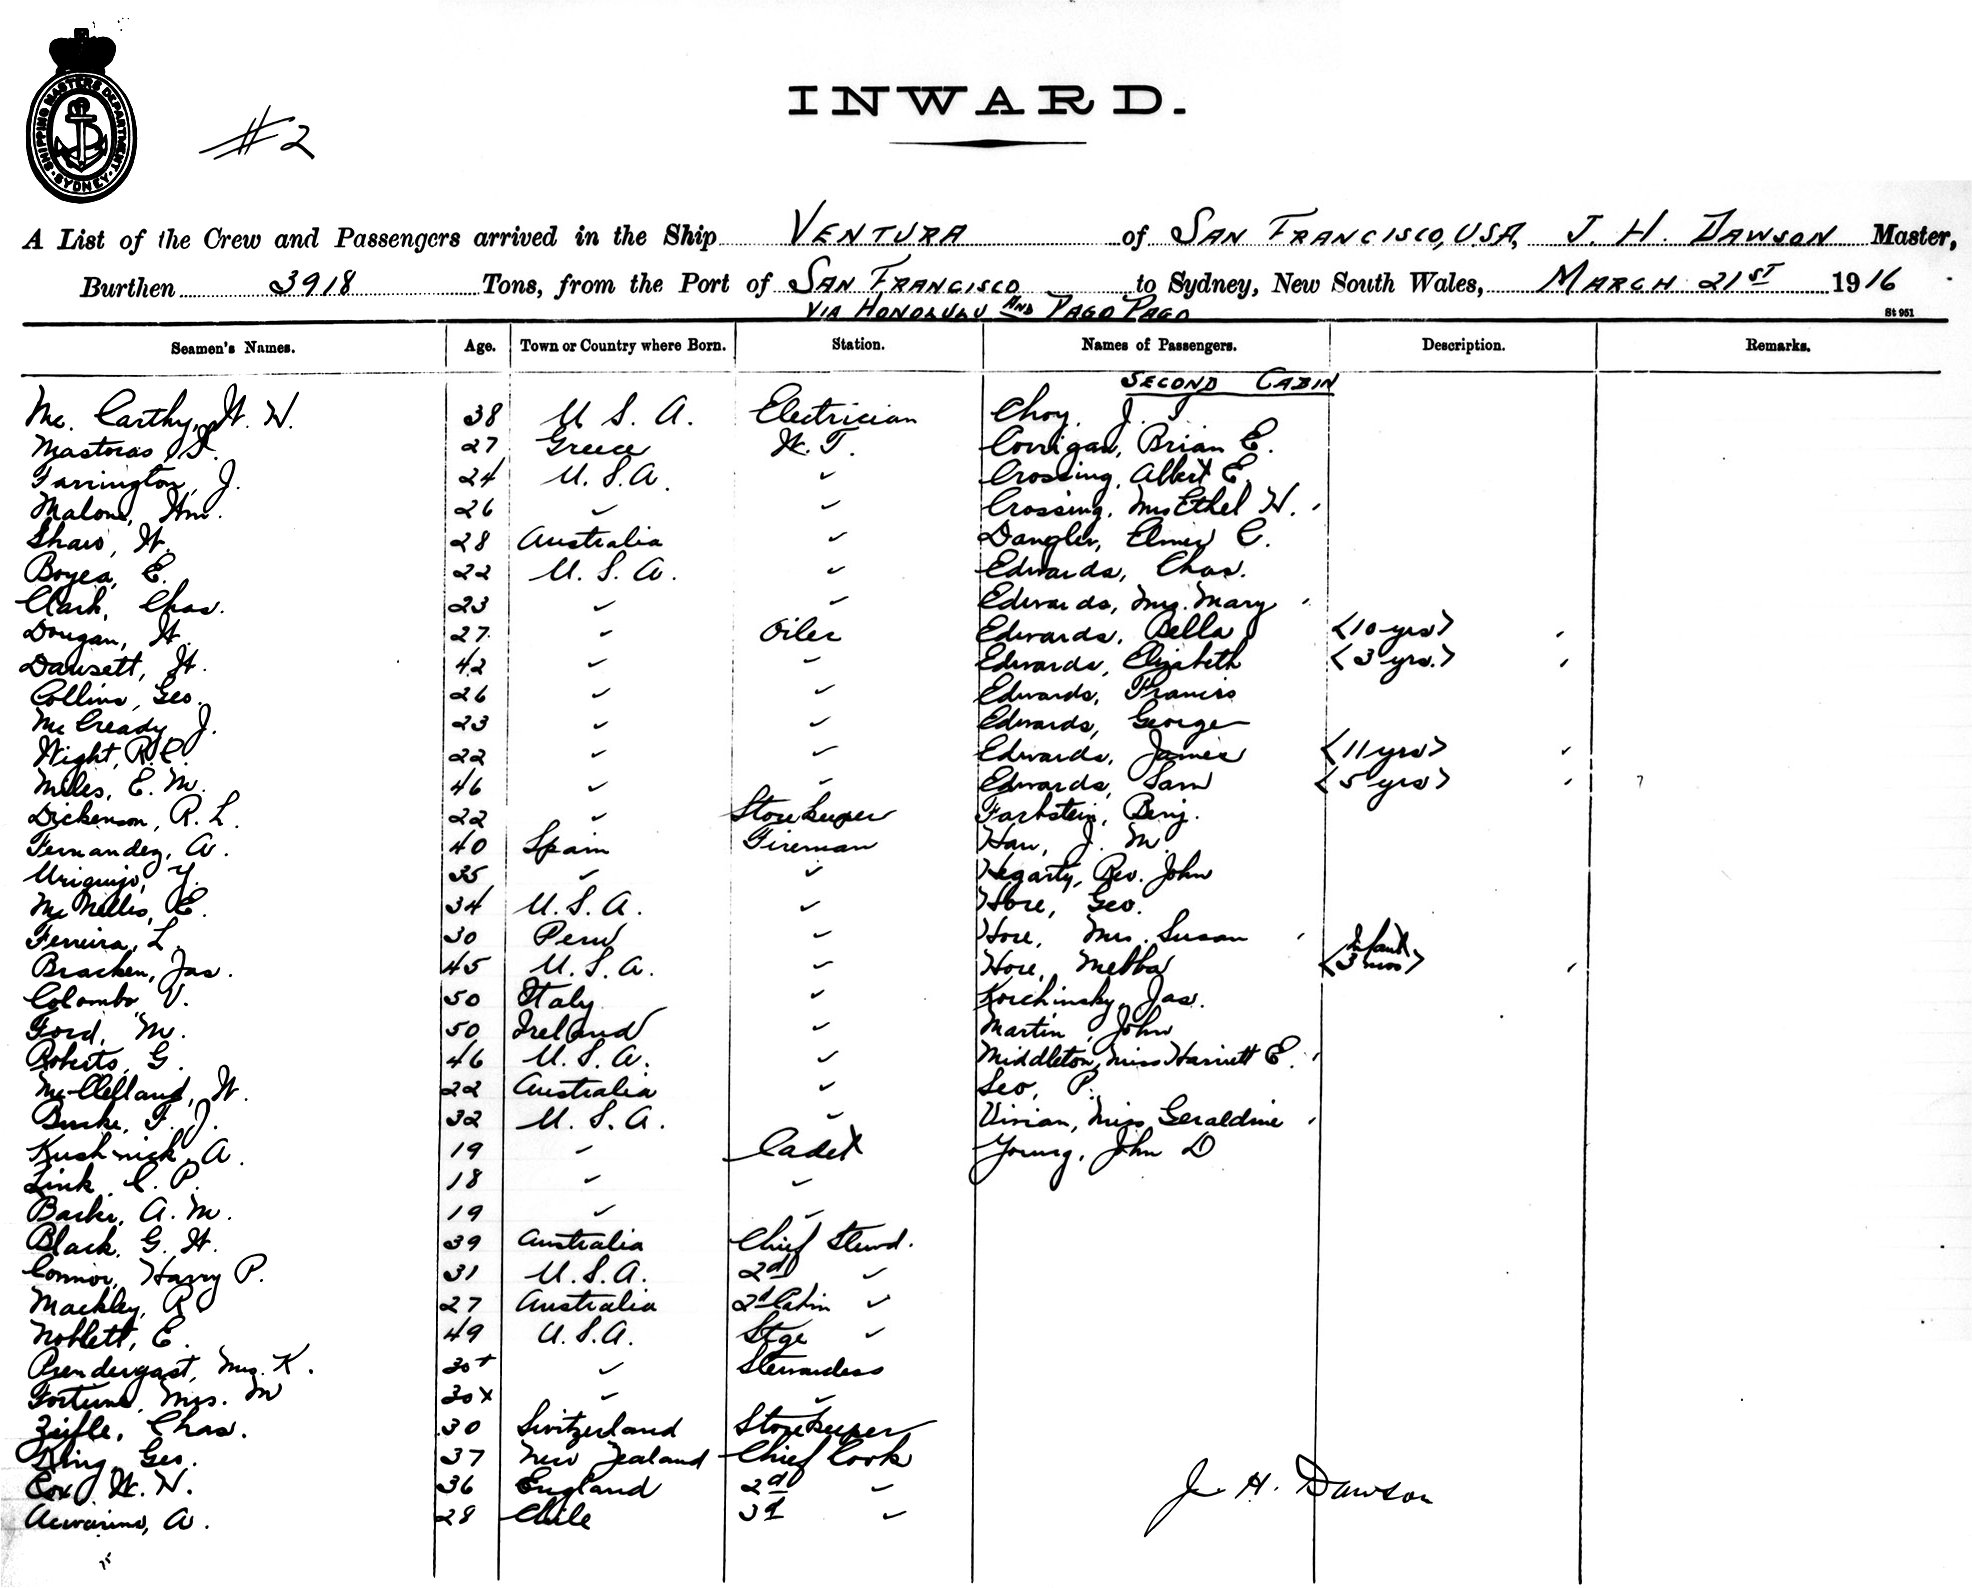 SHIPPING MASTERS DEPARTMENT · SYDNEY ·
#2
INWARD.
A List of the Crew and Passengers arrived in the Ship VENTURA of SAN FRANCISCO, U.S.A, J. H. DAWSON Master,
Burthen 3918 Tons, from the Port of SAN FRANCISCO to Sydney, New South Wales, MARCH 21ST 1916
VIA HONOLULU AND PAGO PAGO
St 951
Seamen's Names. Age. Town or Country where Born. Station. Names of Passengers. Description. Remarks.
SECOND CABIN
Mc. Carthy, W. W. 38 U. S. A. Electrician Choy, J.
Mastoras 27 Greece W. T. Corrigan, Brian E.
Farrington, J. 24 U. S. A. " " Crossing, Albert E.
Malone, Wm. 26 " " Crossing, Mrs Ethel W.
Shaw, W. 28 Australia " Dangler, Elmer C.
Boyea, E. 22 U. S. A. " Edwards, Chas.
Clark, Chas. 23 " " Edwards, Mrs. Mary
Dougan, W. 27 " Oiler Edwards, Bella <10 yrs>
Dawsett, W. 42 " " Edwards, Elizabeth <3 yrs.>
Collins, Geo. 26 " " Edwards, Francis
Mc Cready, J. 23 " " Edwards, George
Wight, R. C. 22 " " Edwards, James <11 yrs>
Miles, E. M. 46 " " Edwards, Sam <5 yrs>
Dickenson, R. L. 22 " Storekeeper Farbstein, Benj.
Fernandez, A. 40 Spain Fireman Haw, J. M.
Uriquijo, Y. 35 " " Hegarty, Rev. John
Mc Nellis, E. 34 U. S. A. " Hore, Geo.
Ferreira, L. 30 Peru " Hore, Mrs. Susan
Bracken, Jas. 45 U. S. A. " Hore, Melba <Infant 3 mos>
Colombo, V. 50 Italy " Korchinsky, Jas.
Ford, M. 50 Ireland " Martin, John
Roberts, G. 46 U. S. A. " Middleton, Miss Harriett E.
Mc Clelland, W. 22 Australia " Seo, P.
Burke, F. J. 32 U. S. A. " Vivian, Miss Geraldine
Kushnick, A. 19 " Cadet Young, John D
Link, C. P. 18 " "
Barker, A. M. 19 " "
Black, G. W. 39 Australia Chief Stewd.
Connor, Harry P. 31 U. S. A. 2d "
Mackley, R 27 Australia 2d Cabin "
Noblett, E. 49 U. S. A. Stge "
Prendergast, Mrs. K. 30+ " Stewardess
Fortune, Mrs. M 30x " "
Zeifle, Chas. 30 Switzerland Storekeeper
King, Geo. 37 New Zealand Chief Cook
Cox, W. W. 36 England 2d "
A. 28 Chile 3d "
J. H. Dawson